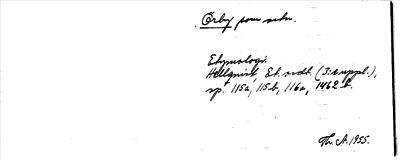 Örby som ortn.
Etymologi.
Hellquist, Et. ordb. (3:e uppl.),
sp. 115a, 115b, 116a, 1462 b.
Th. A. 1955.